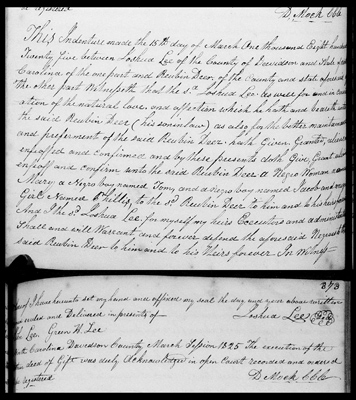 registered
D. Mock CCC
This Indenture made the 15th day of March One thousand Eight hundred
Twenty five between Loshua Lee of the County of Davidson and State of
Carolina of the one part and Reubin Deer of the County and State aforesaid
The other part Witnesseth that the sd. Loshua Lee as well for and in consider
ation of the natural love and affection which he hath and beareth unto
the said Reubin Deer (his son in law) as also for the better maintenance
and preferment of the said Reubin Deer hath Given Granted aliened
enfeoffed and confirmed and by these presents doth Give Grant alien
enfeoff and confirm unto the said Reubin Deer a Negro Woman named
Mary a Negro boy named Tony and a Negro boy named Jacob and negro
Girl Named Phillis, to the sd. Reubin Deer to him and to his heirs forever
And I the sd. Loshua Lee for myself my heirs Executors and administrators
Shall and will Warrant and forever defend the aforesaid Negroes to the
said Reubin Deer to him and to his Heirs forever In Witness
373
I have hereunto set my hand and affixed my seal the day and year above written
sealed and Delivered in presents of
Loshua Lee Seal
Lee Green W. Lee
North Carolina Davidson County March Session 1825 The execution of the
deed of Gift was duly Acknowledged in open Court recorded and ordered
registered
D Mock CCC